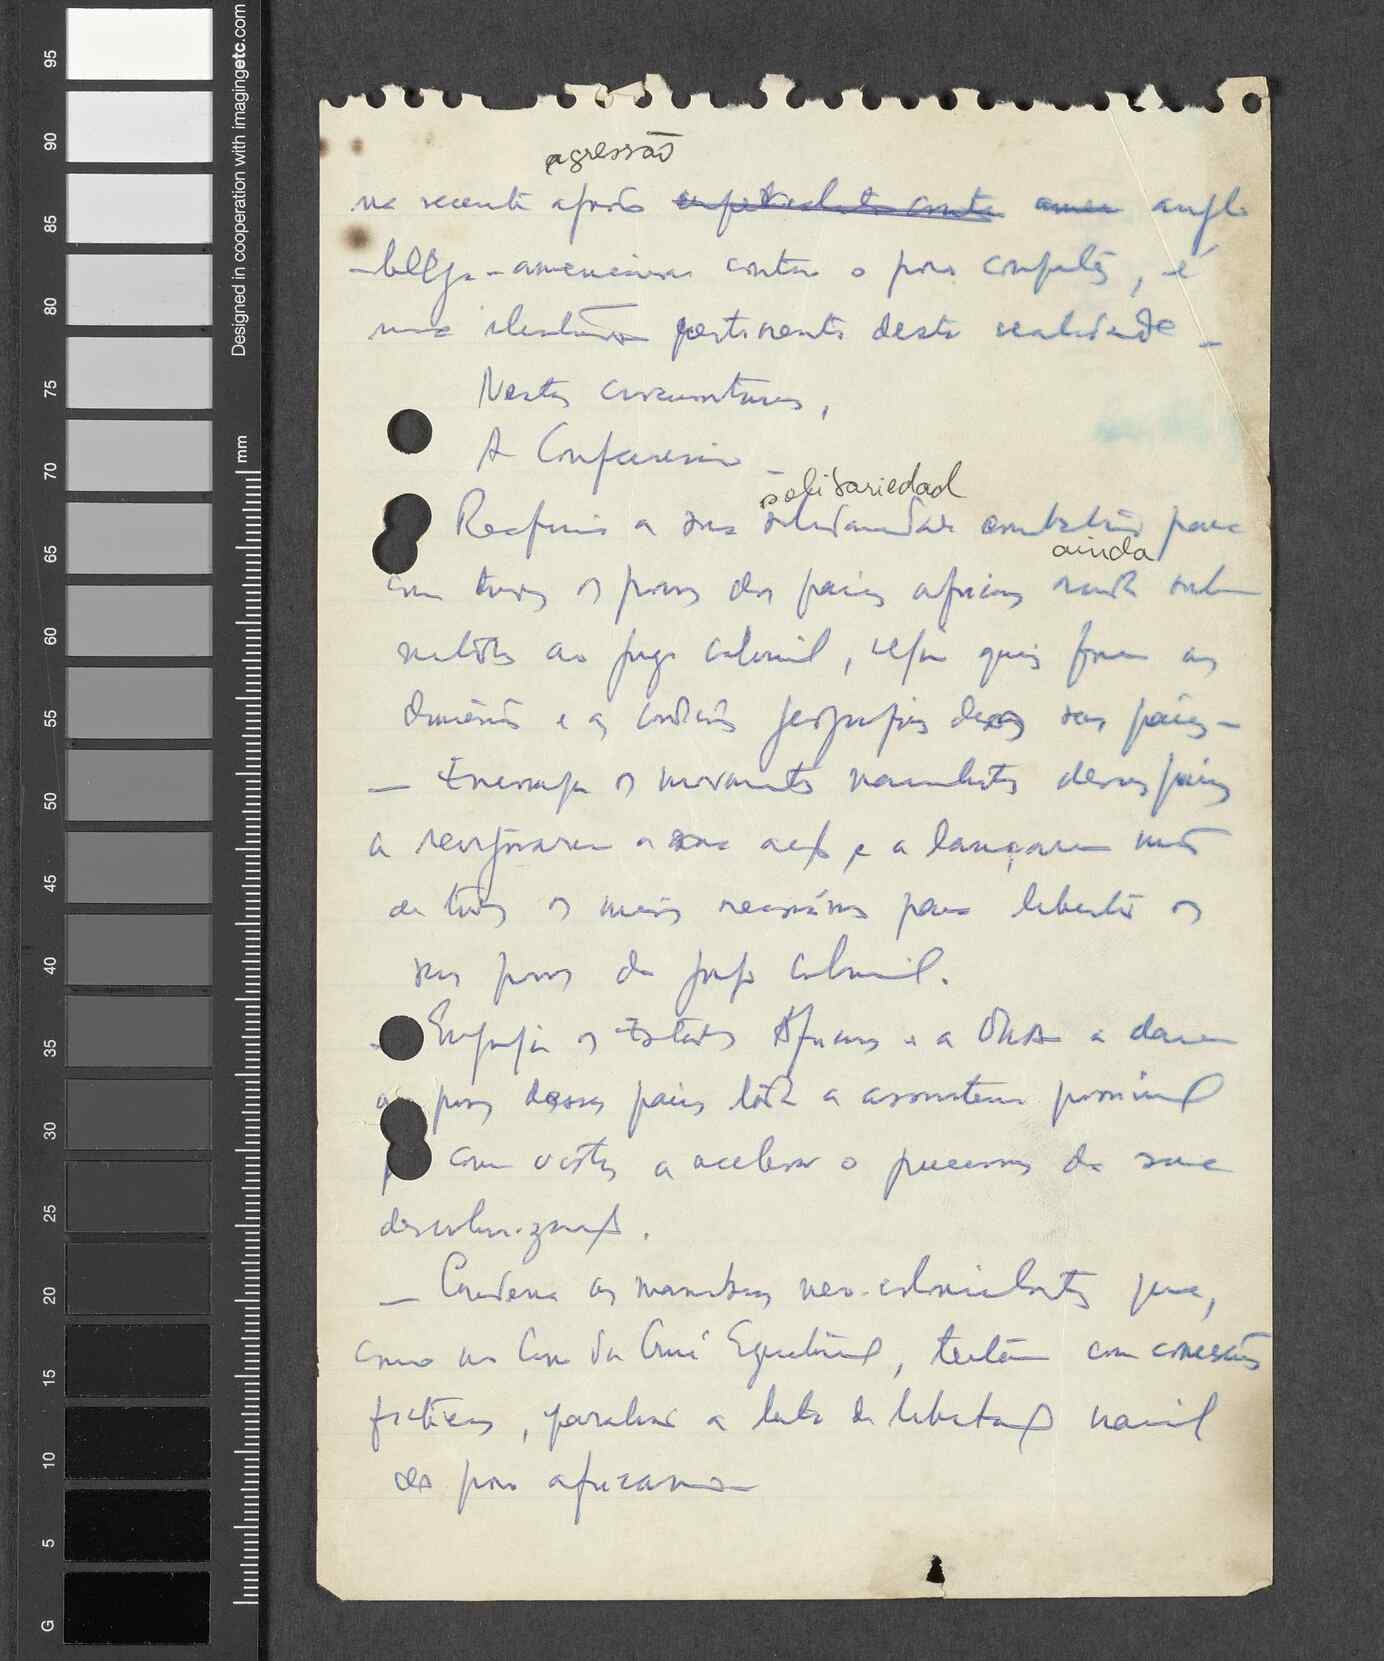 Designed in cooperation with imagingetc.com
mm
95
90
85
80
75
70
65
60
55
50
45
40
35
30
25
20
15
10
5
G
agressão
na recente agressão imperialista contra anglo
-belga-americana contra o povo congolês, é
uma ilustração pertinente desta realidade -
Nestas circunstâncias,
A Conferencia -
solidariedad
Reafirma a sua solidariedade combatente para
ainda
com todos os povos dos países africanos ainda subm
metidos ao jugo colonial, sejam quais forem as
dimensões e as condições geográficas desses seus países -
— Encoraja os movimentos nacionalistas desses países
a reforçarem a sua acção e a lançarem mão
de todos os meios necessários para libertar os
seus povos do jugo colonial.
os Estados Africanos e a OUA a darem
povos desses países toda a assistencia possivel
com vistas a acelerar o processo da sua
descolonização.
— Condena as manobras neo-colonialistas que,
como no caso da Guiné Equatorial, tentam com concessões
ficticias, paralisar a luta de libertação nacional
do povo africano